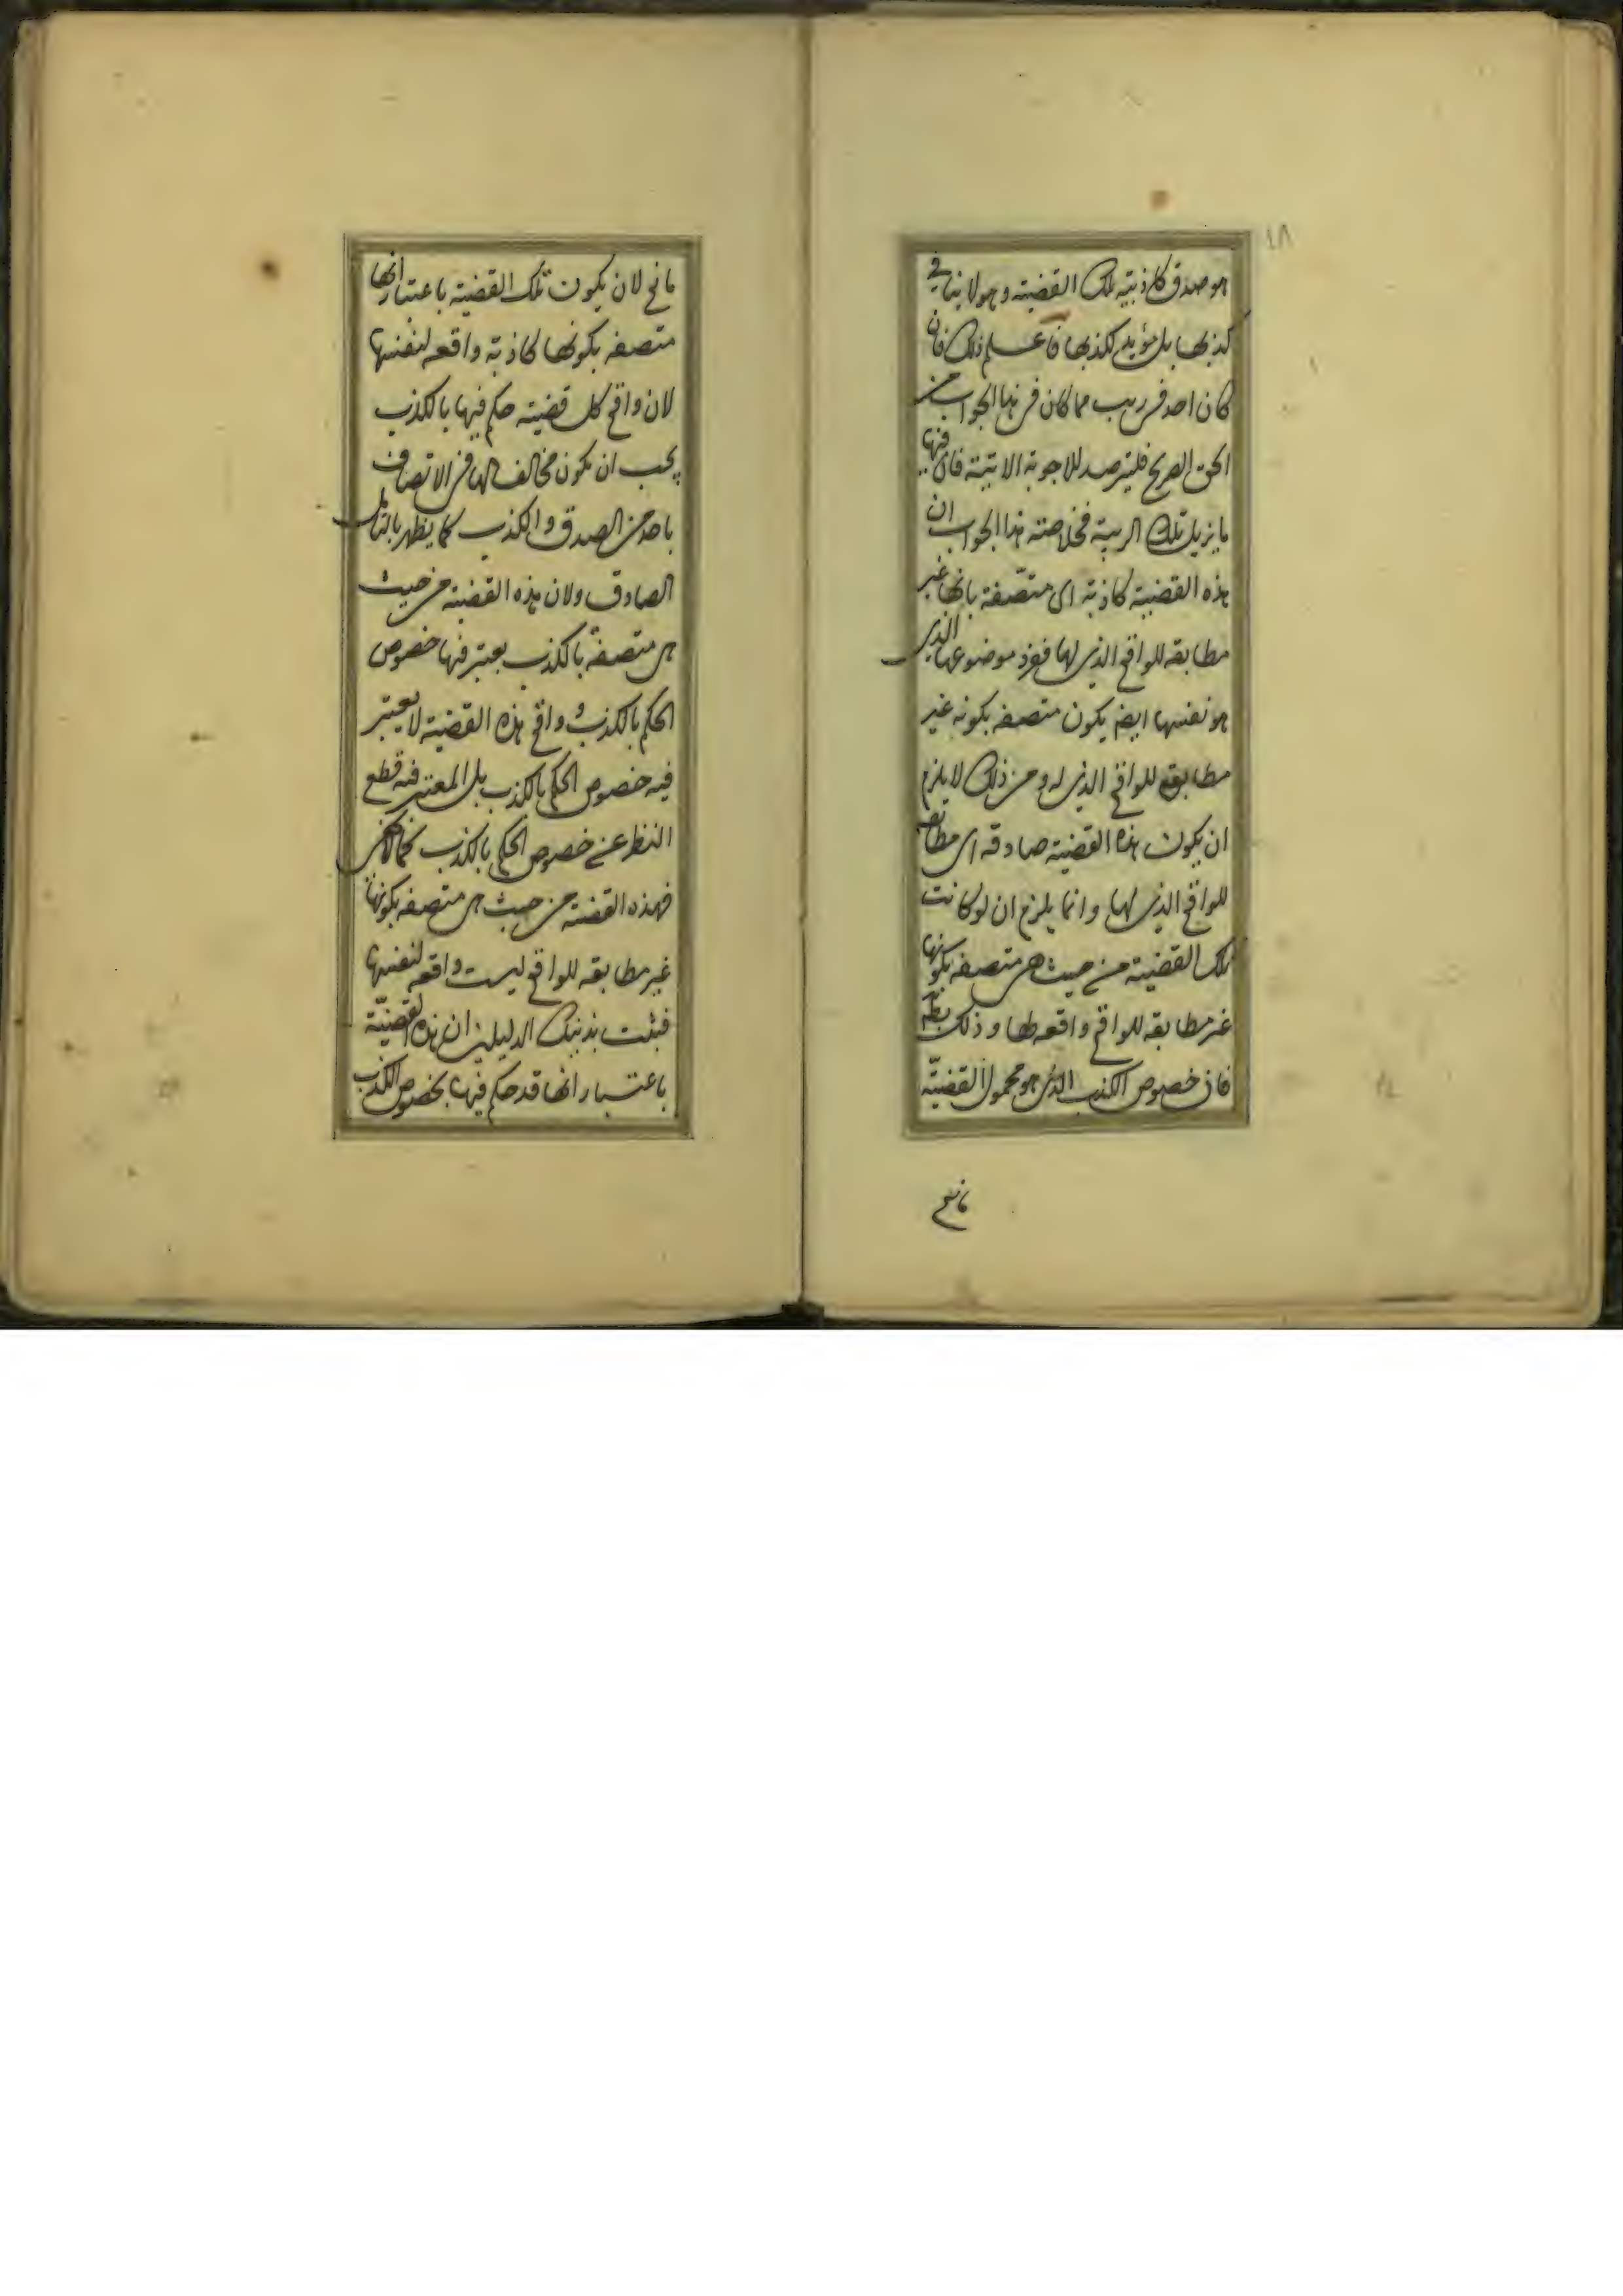 ١٨
هو صدق كاذبية تلك القضية وهو لا ينافي
كذبها بل مؤيد لكذبها فاعلم ذلك فان
كان احد في ريب مما كان في هذا الجواب من
الحق الصريح فليترصد للاجوبة الاتية فان فيها
ما يزيل تلك الريبة فخلاصته هذا الجواب ان
هذه القضية كاذبة اى متصفة بانها غير
مطابقه للواقع الذي لها ففرد موضوعها الذي
هو نفسها ايضم يكون متصفه بكونه غير
مطابقه للواقع الذي له ومن ذلك لا يلزم
ان يكون هذه القضية صادقه اى مطابقه
للواقع الذي لها وانما يلزم ان لو كانت
تلك القضية من حيث هي متصفه بكونها
غير مطابقه للواقع واقعه لها وذلك بط
فان خصوص الكذب الذي هو محمول القضيّة
مانع
مانع لان يكون تلك القضية باعتبار انها
متصفه بكونها كاذبة واقعه لنفسها
لان واقع كل قضية حكم فيها بالكذب
يجب ان يكون مخالف لها في الاتصاف
باحد من الصدق والكذب كما يظهر بالتامل
الصادق ولان هذه القضية من حيث
هي متصفة بالكذب يعتبر فيها خصوص
الحكم بالكذب و واقع هذه القضية لا يعتبر
فيه خصوص الحكم بالكذب بل المعتبر فيه قطع
النظر عن خصوص الحكم بالكذب كما لا يخفى
فهذه القضية من حيث هي متصفه بكونها
غير مطابقه للواقع ليست واقعه لنفسها
فثبت بذينك الدليلين ان هذه القضيّة
باعتبار انها قد حكم فيها بخصوص الكذب